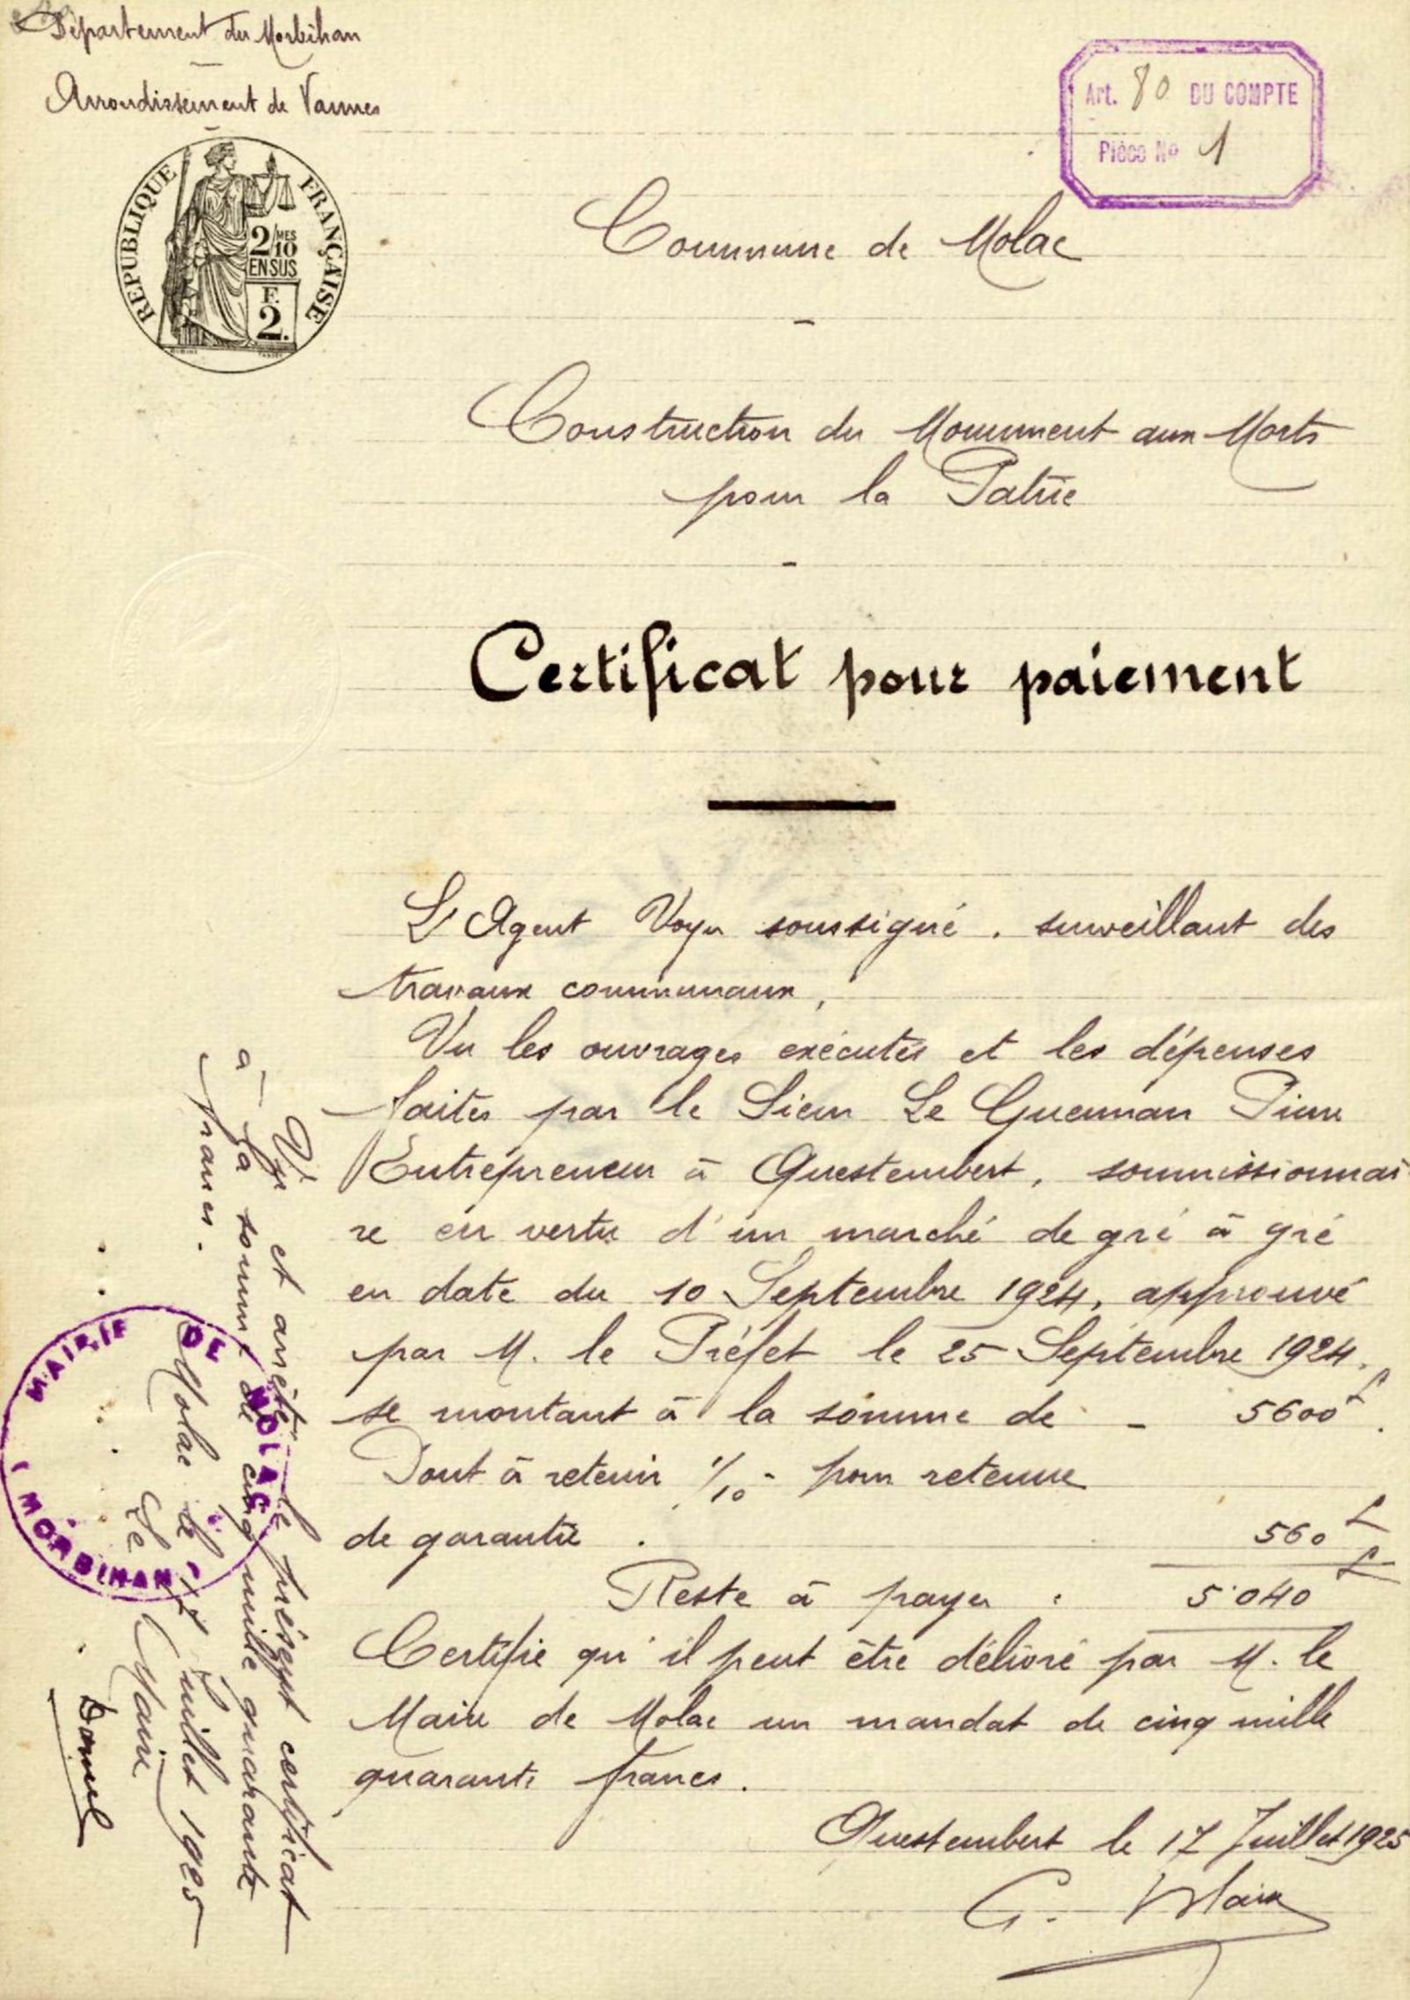 Département du Morbihan
Arrondissement de Vannes
RÉPUBLIQUE FRANÇAISE
2/MES
10
EN SUS
F.
2.
Art. 80 DU COMPTE
Pièce No 1
Commune de Molac
Construction du Monument aux Morts
pour la Patrie
Certificat pour paiement
L'Agent Voyer soussigné, surveillant des
travaux communaux,
Vu les ouvrages exécutés et les dépenses
faites par le Sieur Le Guennan Pierre
Entrepreneur à Questembert, soumissionnai
re en vertu d'un marché de gré à gré
en date du 10 Septembre 1924, approuvé
par M. le Préfet le 25 Septembre 1924,
se montant à la somme de - 5600f.
Dont à retenir 1/10 - pour retenue
de garantie . 560f
Reste à payer : 5.040f
Certifie qu'il peut être délivré par M. le
Maire de Molac un mandat de cinq mille
quarante francs.
Questembert le 17 Juillet 1925
Vu et arrêté le présent certificat
à la somme de cinq mille quarante
francs.
Molac le 17 Juillet 1925
Le Maire
MAIRIE DE MOLAC
(MORBIHAN)